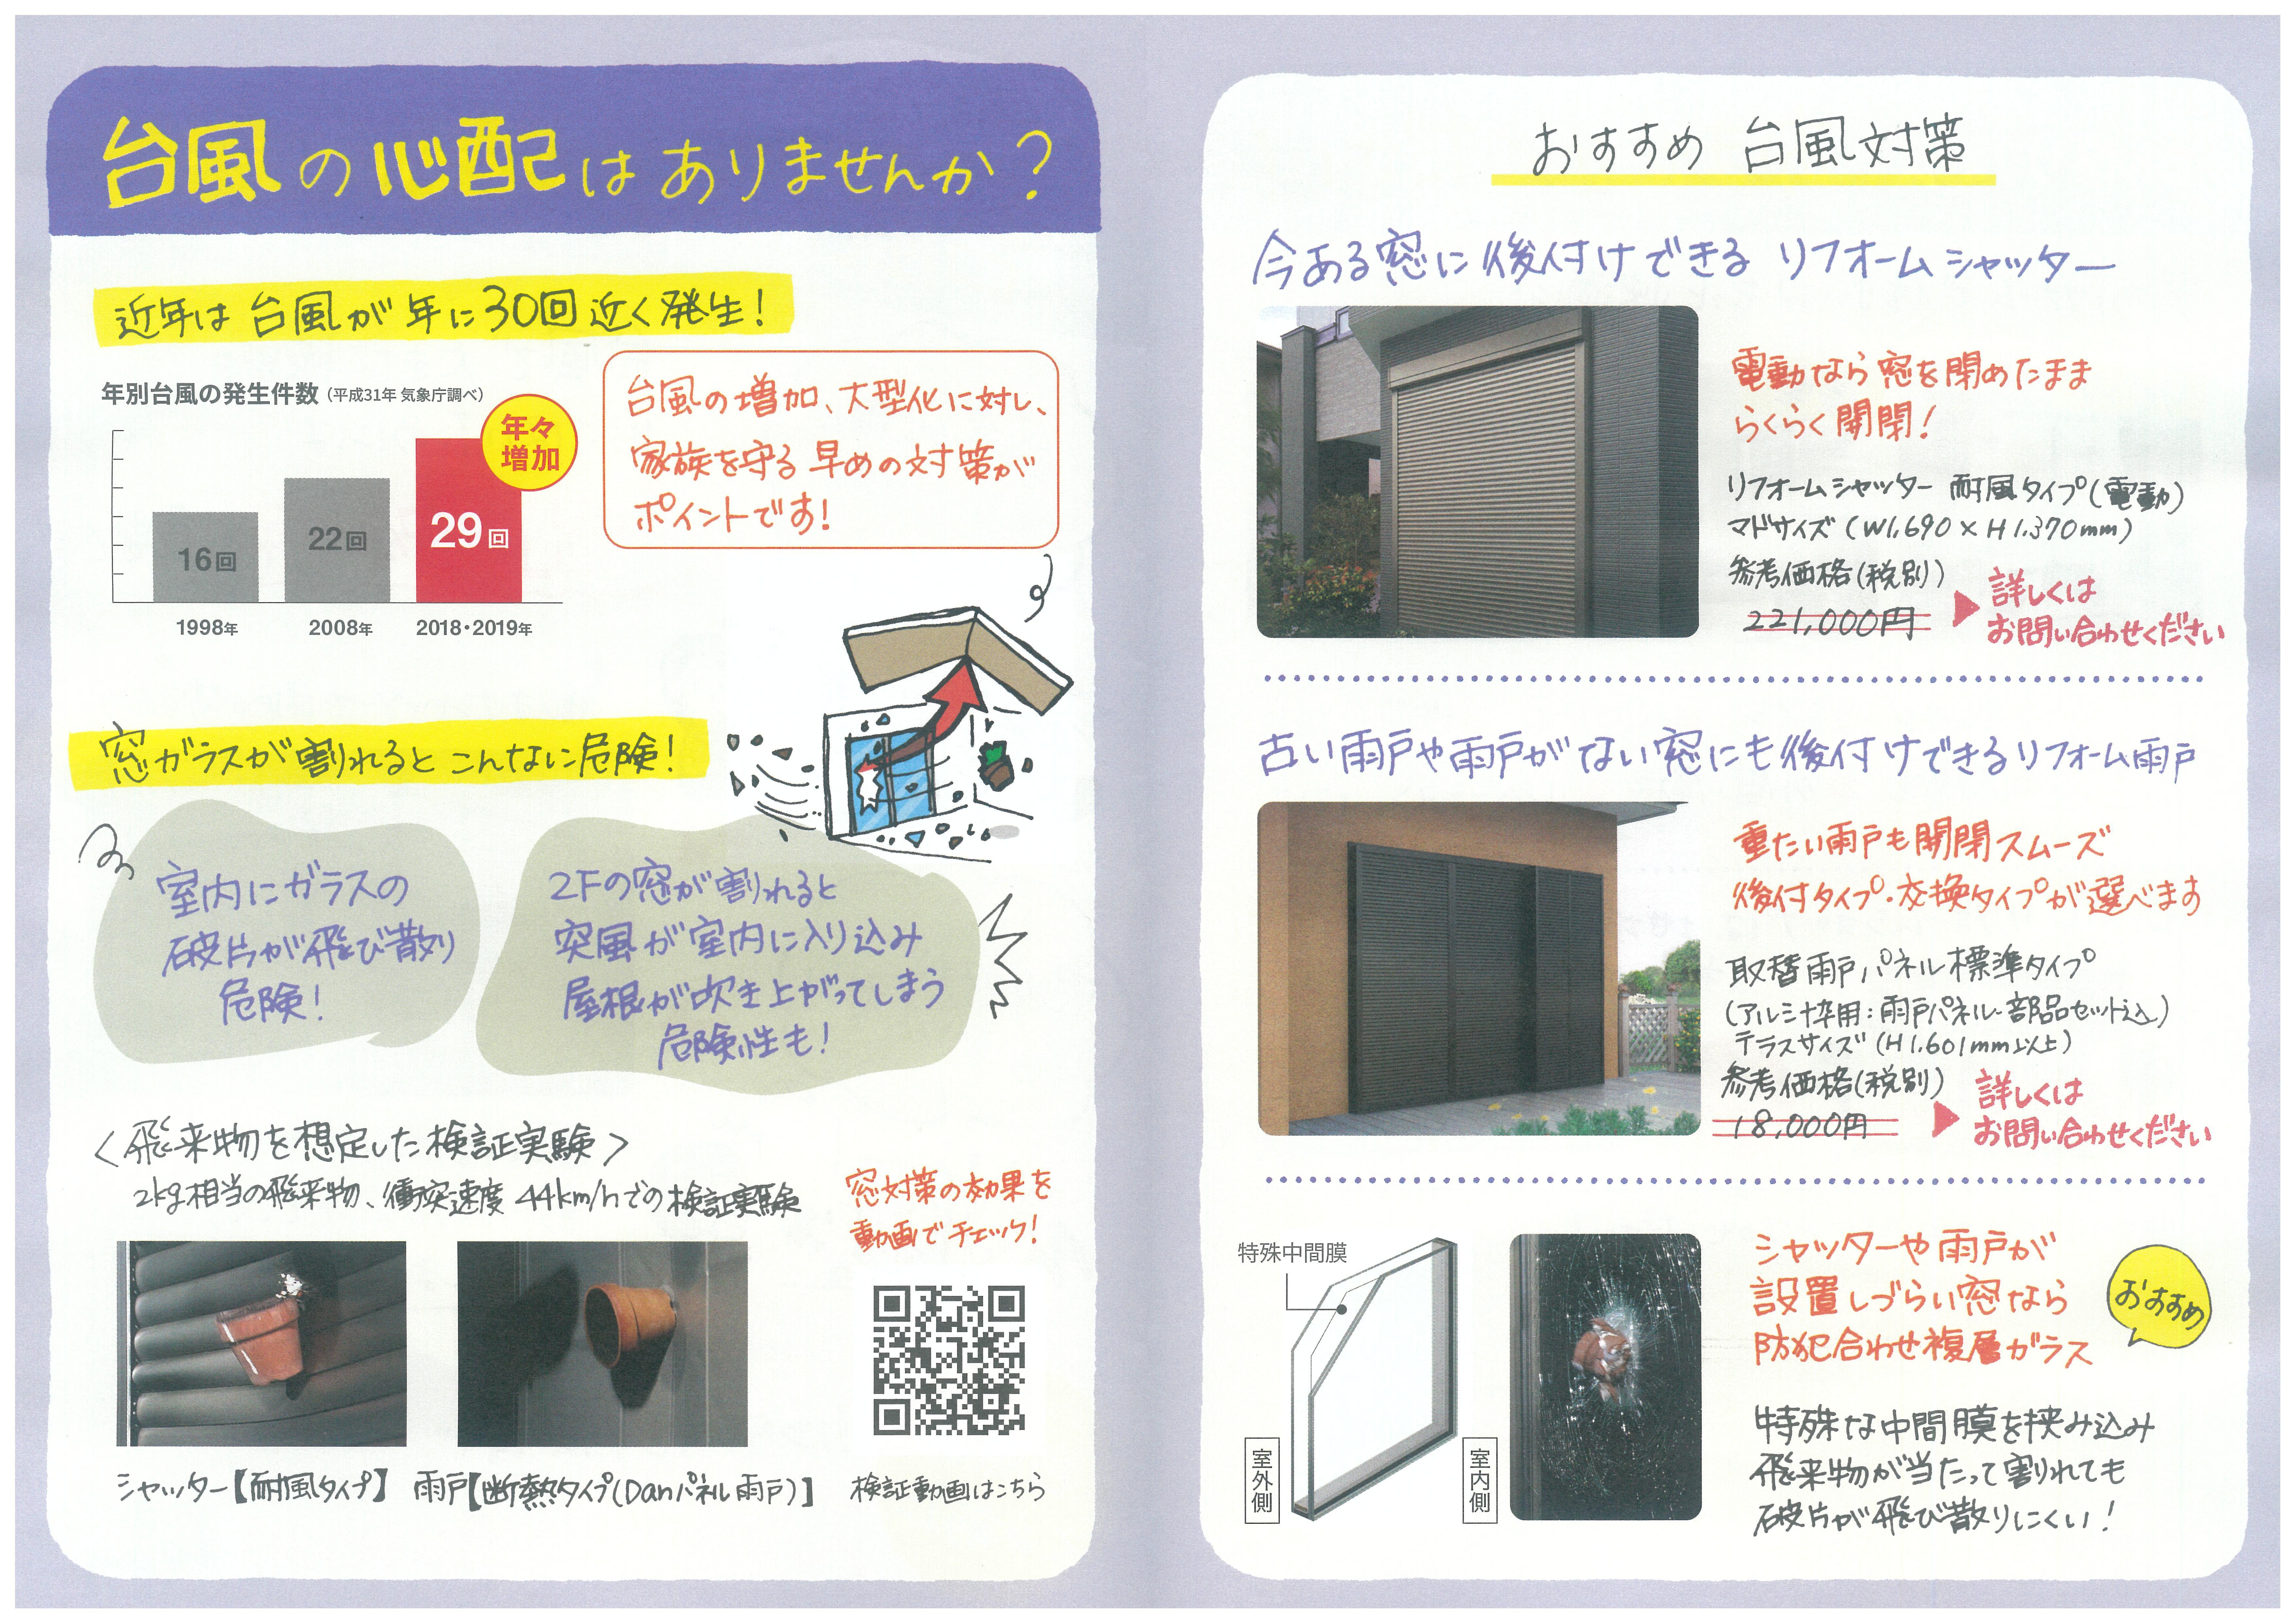 台風の心配はありませんか?
近年は台風が年に30回近く発生!
年別台風の発生件数（平成31年 気象庁調べ）
年々
増加
16回
22回
29回
1998年
2008年
2018・2019年
台風の増加、大型化に対し、
家族を守る早めの対策が
ポイントです!
窓ガラスが割れるとこんなに危険!
室内にガラスの
破片が飛び散り
危険!
2Fの窓が割れると
突風が室内に入り込み
屋根が吹き上がってしまう
危険性も!
<飛来物を想定した検証実験>
2kg相当の飛来物、衝突速度44km/hでの検証実験
窓対策の効果を
動画でチェック!
シャッター【耐風タイプ】
雨戸【断熱タイプ(Danパネル雨戸)】
検証動画はこちら
おすすめ 台風対策
今ある窓に後付けできる リフォームシャッター
電動なら窓を閉めたまま
らくらく開閉!
リフォームシャッター 耐風タイプ(電動)
マドサイズ (W1,690×H1,370mm)
参考価格(税別)
221,000円
詳しくは
お問い合わせください
古い雨戸や雨戸がない窓にも後付けできるリフォーム雨戸
重たい雨戸も開閉スムーズ
後付タイプ・交換タイプが選べます
取替雨戸パネル標準タイプ
(アルミ枠用:雨戸パネル・部品セット込)
テラスサイズ (H1,601mm以上)
参考価格(税別)
18,000円
詳しくは
お問い合わせください
特殊中間膜
室外側
室内側
シャッターや雨戸が
設置しづらい窓なら
防犯合わせ複層ガラス
おすすめ
特殊な中間膜を挟み込み
飛来物が当たって割れても
破片が飛び散りにくい!